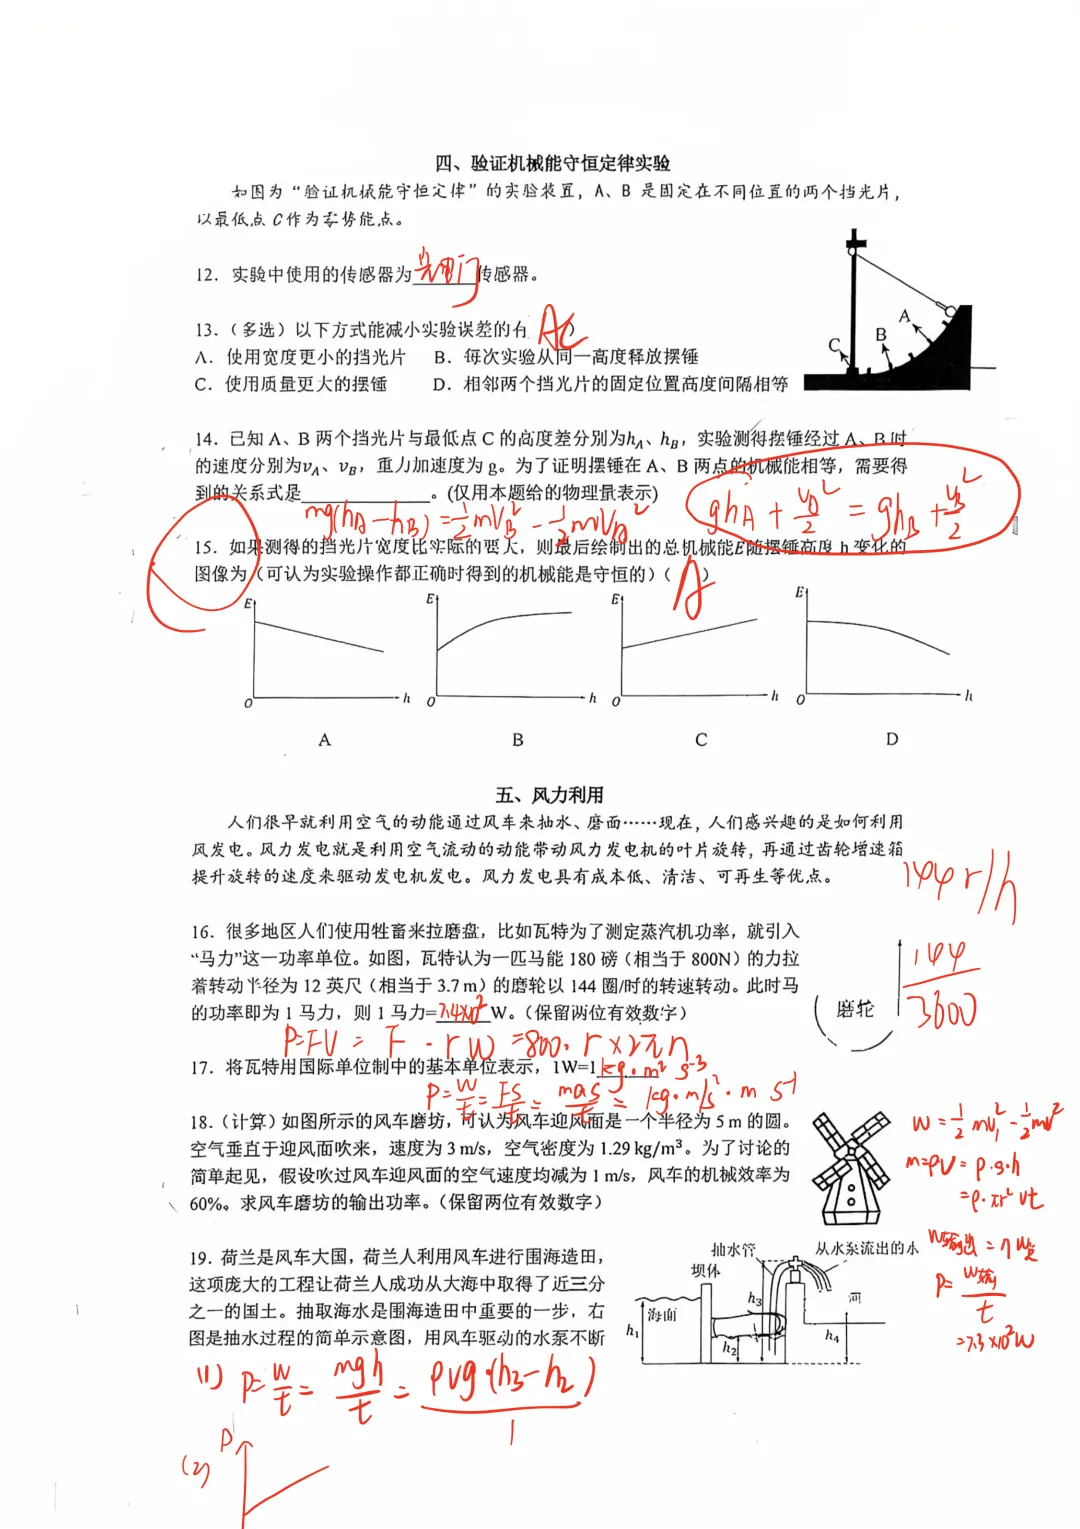 四、验证机械能守恒定律实验
如图为“验证机械能守恒定律”的实验装置，A、B 是固定在不同位置的两个挡光片，
以最低点 C 作为零势能点。
12．实验中使用的传感器为光电门传感器。
13．（多选）以下方式能减小实验误差的有（AC）
A．使用宽度更小的挡光片 B．每次实验从同一高度释放摆锤
C．使用质量更大的摆锤 D．相邻两个挡光片的固定位置高度间隔相等
A
B
C
14．已知 A、B 两个挡光片与最低点 C 的高度差分别为hA、hB，实验测得摆锤经过 A、B 时
的速度分别为vA、vB，重力加速度为 g。为了证明摆锤在 A、B 两点的机械能相等，需要得
到的关系式是____________。（仅用本题给的物理量表示）
mg(hA-hB)=½mVB²-½mVA²
ghA+vA²/2=ghB+vB²/2
15．如果测得的挡光片宽度比实际的要大，则最后绘制出的总机械能E随摆锤高度 h 变化的
图像为（可认为实验操作都正确时得到的机械能是守恒的）（A）
E E E E
O h O h O h O h
A B C D
五、风力利用
人们很早就利用空气的动能通过风车来抽水、磨面……现在，人们感兴趣的是如何利用
风发电。风力发电就是利用空气流动的动能带动风力发电机的叶片旋转，再通过齿轮增速箱
提升旋转的速度来驱动发电机发电。风力发电具有成本低、清洁、可再生等优点。
144 r/h
16．很多地区人们使用牲畜来拉磨盘，比如瓦特为了测定蒸汽机功率，就引入
“马力”这一功率单位。如图，瓦特认为一匹马能 180 磅（相当于 800N）的力拉
着转动半径为 12 英尺（相当于 3.7 m）的磨轮以 144 圈/时的转速转动。此时马
的功率即为 1 马力，则 1 马力=7.4×10²W。（保留两位有效数字）
磨轮
144/3600
P=FV=F·rω=800·r×2πn
17．将瓦特用国际单位制中的基本单位表示，1W=1kg·m² s⁻³
P=W/t=FS/t=mas/t=kg·m/s²·m s⁻¹
18．（计算）如图所示的风车磨坊，可认为风车迎风面是一个半径为 5 m 的圆。
空气垂直于迎风面吹来，速度为 3 m/s，空气密度为 1.29 kg/m³。为了讨论的
简单起见，假设吹过风车迎风面的空气速度均减为 1 m/s，风车的机械效率为
60%。求风车磨坊的输出功率。（保留两位有效数字）
W=½mv₁²-½mv²
m=ρV=ρ·s·h
=ρ·πr² vt
W输出=ηW总
P=W输/t
=7.3×10²W
19．荷兰是风车大国，荷兰人利用风车进行围海造田，
这项庞大的工程让荷兰人成功从大海中取得了近三分
之一的国土。抽取海水是围海造田中重要的一步，右
图是抽水过程的简单示意图，用风车驱动的水泵不断
抽水管
从水泵流出的水
坝体
海面
河
h₁
h₂
h₃
h₄
(1) P=W/t=mgh/t=ρVg·(h₃-h₂)/1
(2)
P